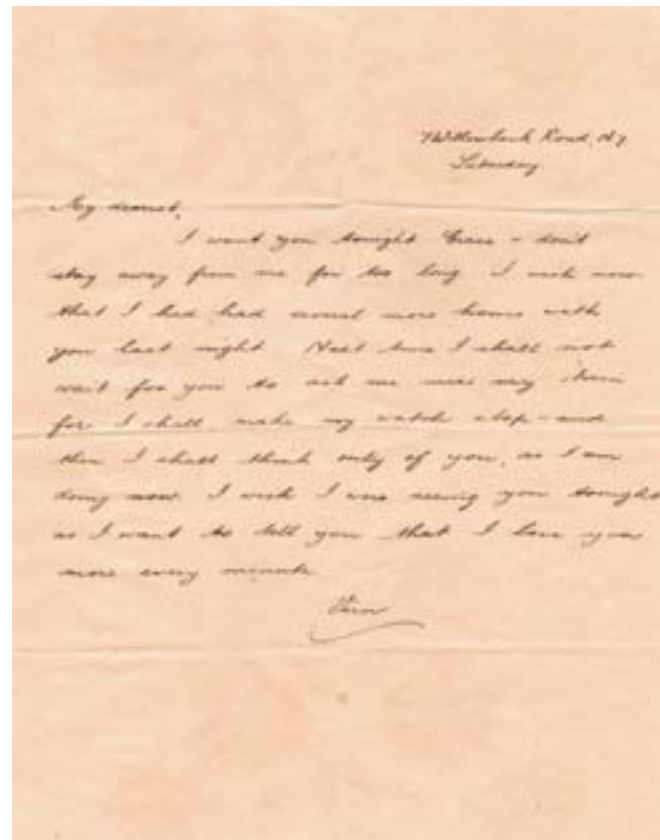 Road, N7
Saturday
My dearest,
I want you tonight Grace - don't
stay away from me for too long. I wish now
that I had had more with
you last night. Next time I shall not
wait for you to ask me my
for I shall make my watch stop - and
then I shall think only of you, as I am
doing now. I wish I was seeing you tonight
as I want to tell you that I love you
more every minute